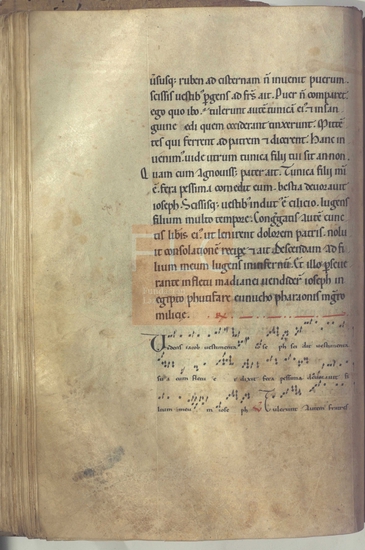 uersusq; ruben ad cisternam n̄ inuenit puerum.
scissis uestib; ꝑgens ad frs̄ ait. Puer n̄ comparet
ego quo ibo. tulerunt autē tunicā ei; et in san
guine edi quem occiderant tinxerunt. Mitten
tes qui ferrent ad patrem et dicerent. Hanc in
uenim; uide utrum tunica filij tui sit an non.
Quam cum agnouiss; pater ait. Tunica filii mei
ē. fera pessima comedit eum. bestia deuorauit
ioseph. Scissisq; uestib; indut; ē cilicio. lugens
filium multo tempore. Congregatis autē cunc
tis libis ei; ut lenirent dolorem patris. nolu
it consolationē recipe et ait. Descendam ad fi
lium meum lugens in infernū. Et illo perseue
rante in fletu madianei uendider̄ ioseph in
egipto phutifare eunucho pharaonis magr̄o
milicie.
Videns iacob uestimenta ioseph sci dit uestimenta
sua cum fletu et dixit fera pessima deuorauit fi
lium meum ioseph Tulerunt autem fratres